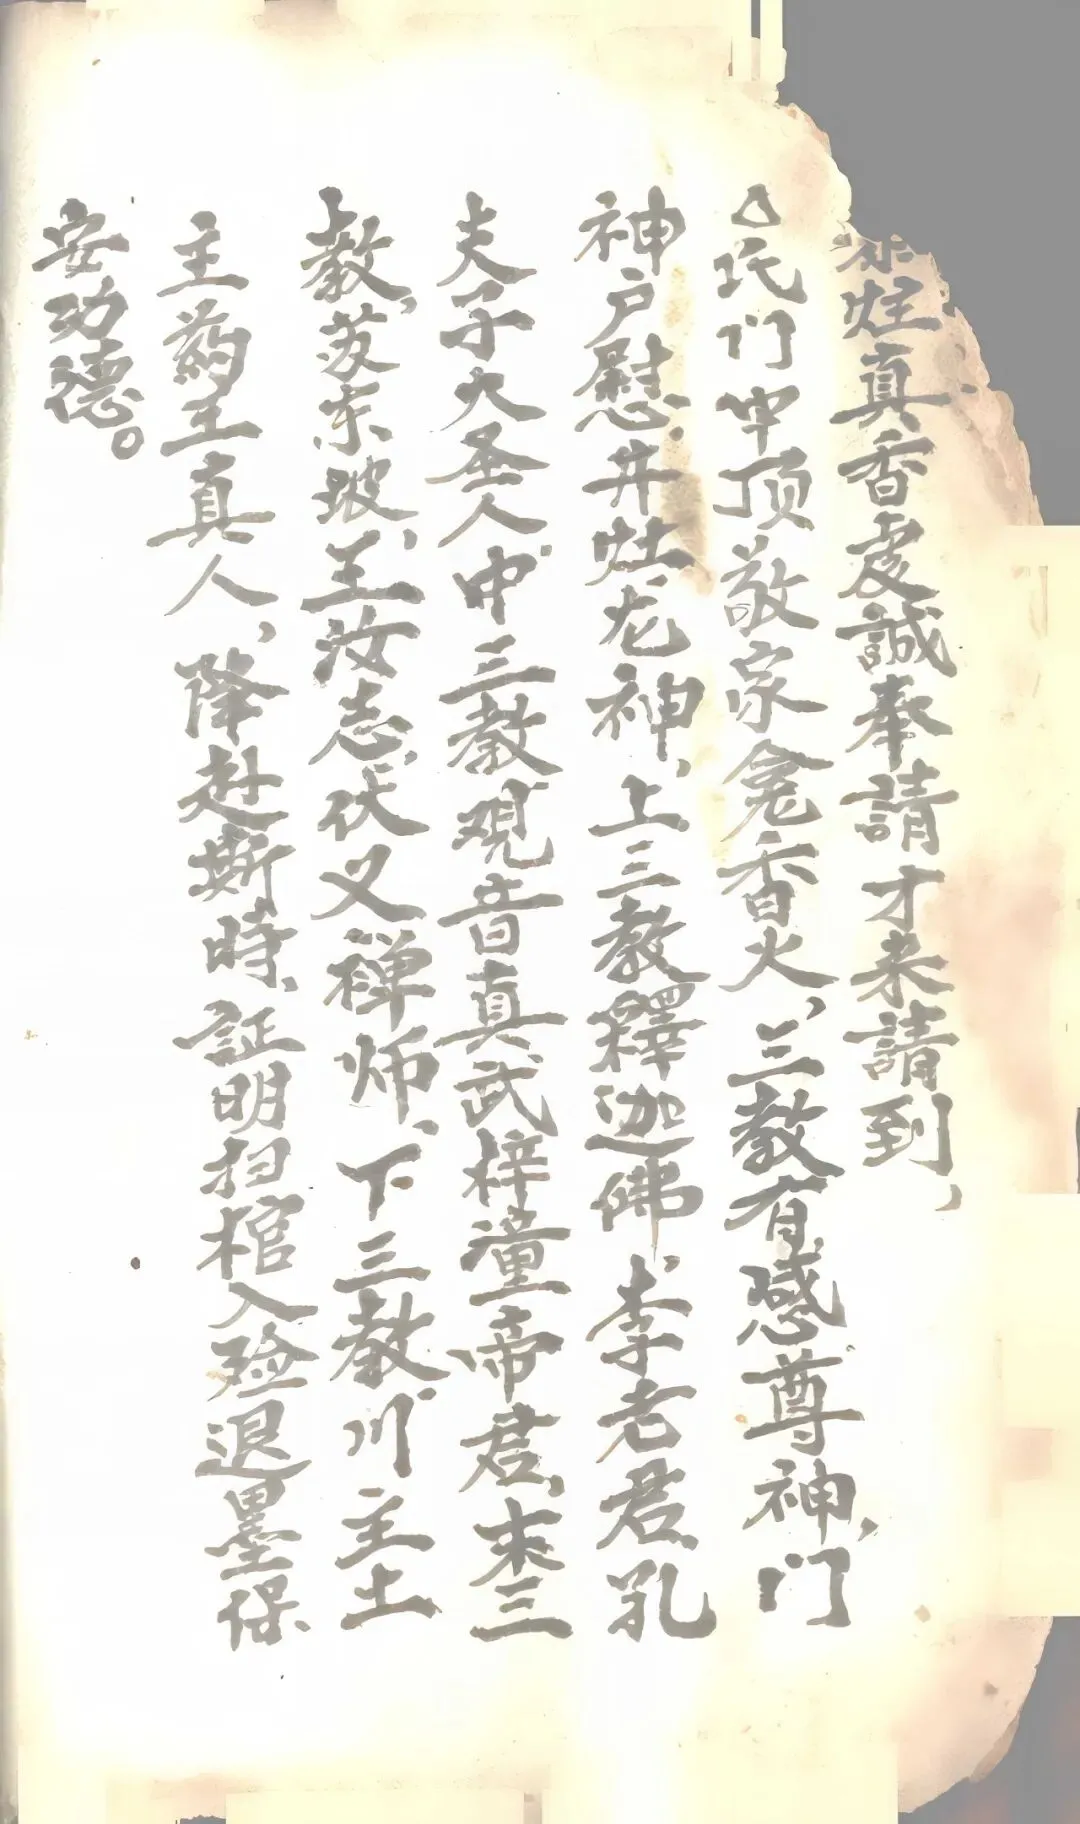 炷真香虔誠奉請才来請到，
△氏门中顶敬家龛香火，三教有感尊神，门
神户慰井灶龙神，上三教釋迦佛、李老君、孔
夫子大圣人、中三教观音真武梓潼帝君、末三
教，苏东玻、王汝志、伏义禅师、下三教川主土
主药王真人，降赴斯時、証明扫棺入殓退墨保
安功德。